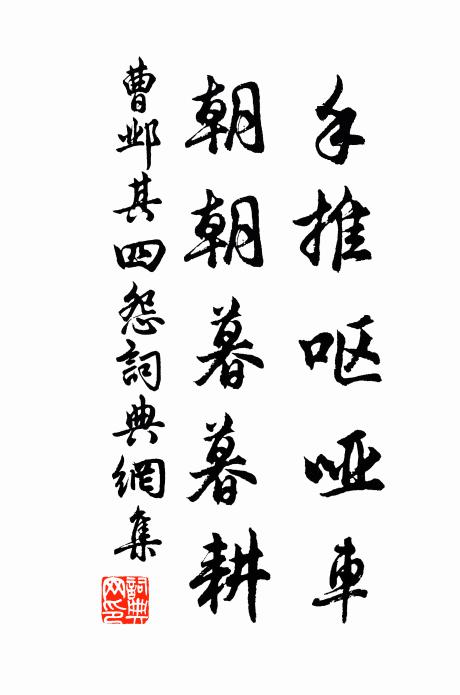 手推呕哑車
朝朝暮暮耕
曹邺其四怨詞典網集
詞典
网印